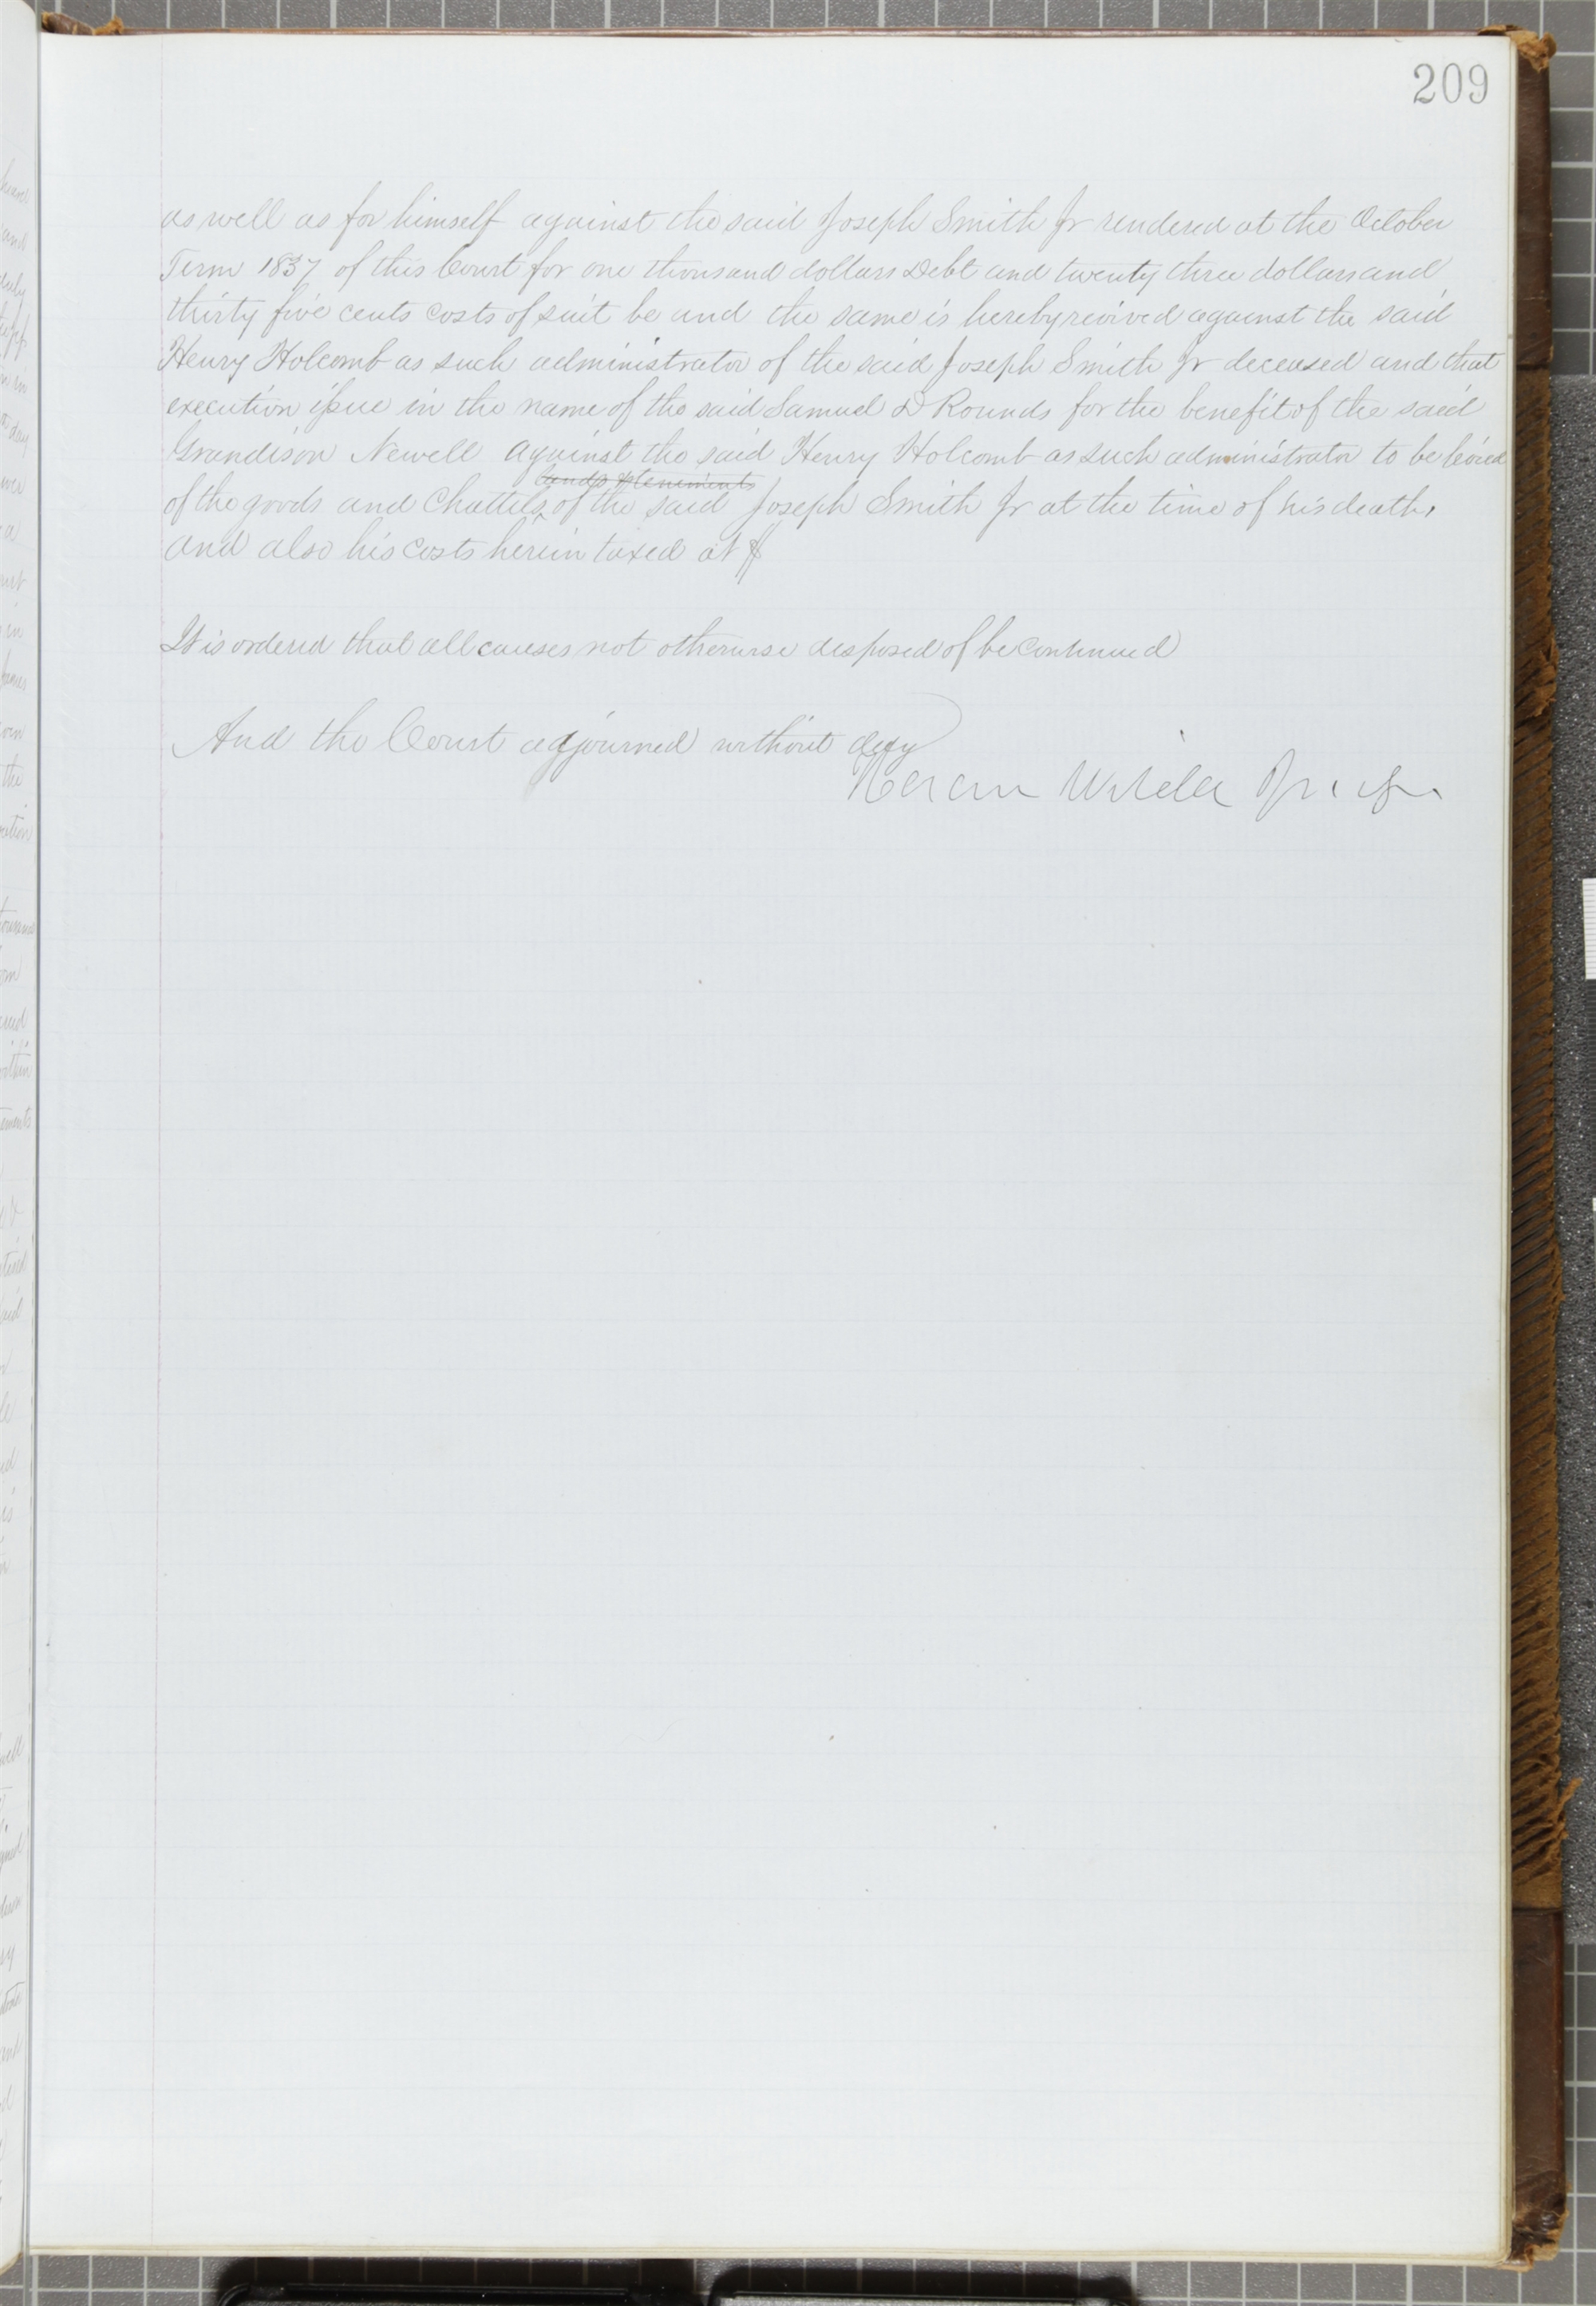 209
as well as for himself against the said Joseph Smith Jr rendered at the October
Term 1837 of this Court for one thousand dollars Debt and twenty three dollars and
thirty five cents costs of suit be and the same is hereby revived against the said
Henry Holcomb as such administrator of the said Joseph Smith Jr deceased and that
execution issue in the name of the said Samuel D Rounds for the benefit of the said
Grandison Newell against the said Henry Holcomb as such administrator to be levied
lands & tenements
of the goods and Chattels of the said Joseph Smith Jr at the time of his death,
and also his costs herein taxed at $
It is ordered that all causes not otherwise disposed of be continued
And the Court adjourned without day
Horace Wilder